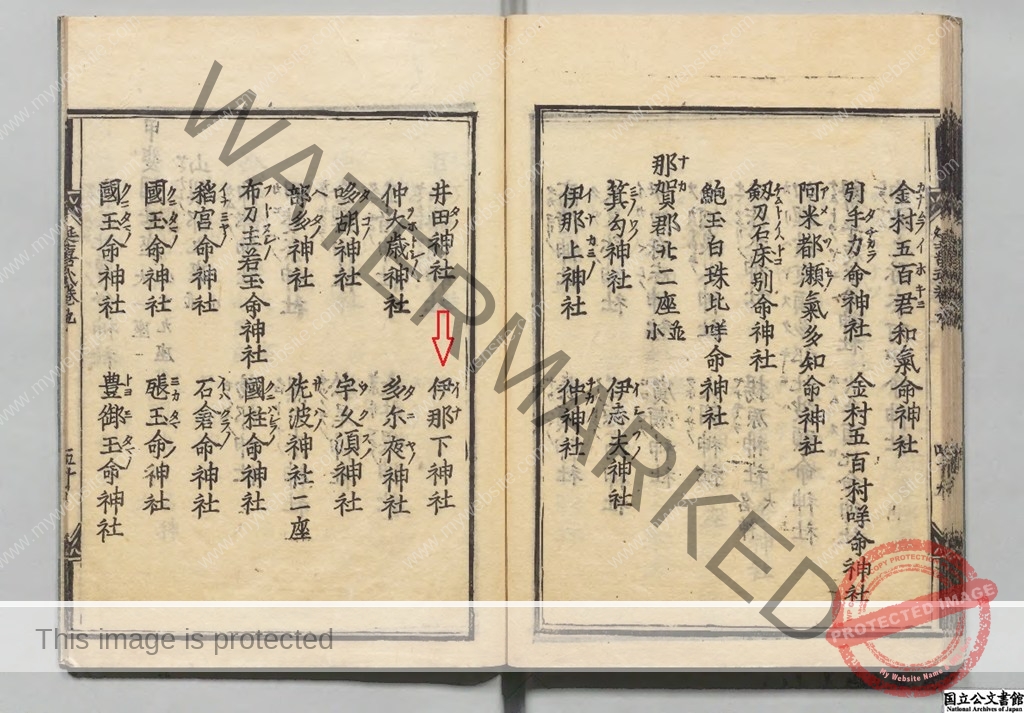 金村五百君和氣命神社
引手力命神社 金村五百村咩命神社
阿米都瀬氣多知命神社
劔刀石床別命神社
鮑玉白珠比咩命神社
那賀郡廿二座並小
箕勾神社 伊志夫神社
伊那上神社 仲神社
井田神社 伊那下神社
仲大歳神社 多尓夜神社
哆胡神社 宇久須神社
部多神社 佐波神社二座
布刀主若玉命神社 國柱命神社
稲宮命神社 石倉命神社
國玉命神社
國玉命神社 豊御玉命神社
五十
WATERMARKED
This image is protected
COPY PROTECTION
PROTECTED IMAGE
My Website Name
国立公文書館
National Archives of Japan